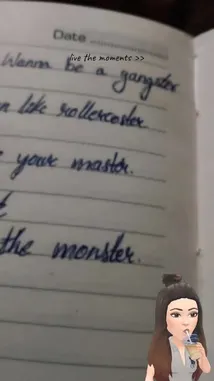 Date ..................
live the moments >>
Wanna be a gangster
like rollercoster.
your mastor.
the monster.